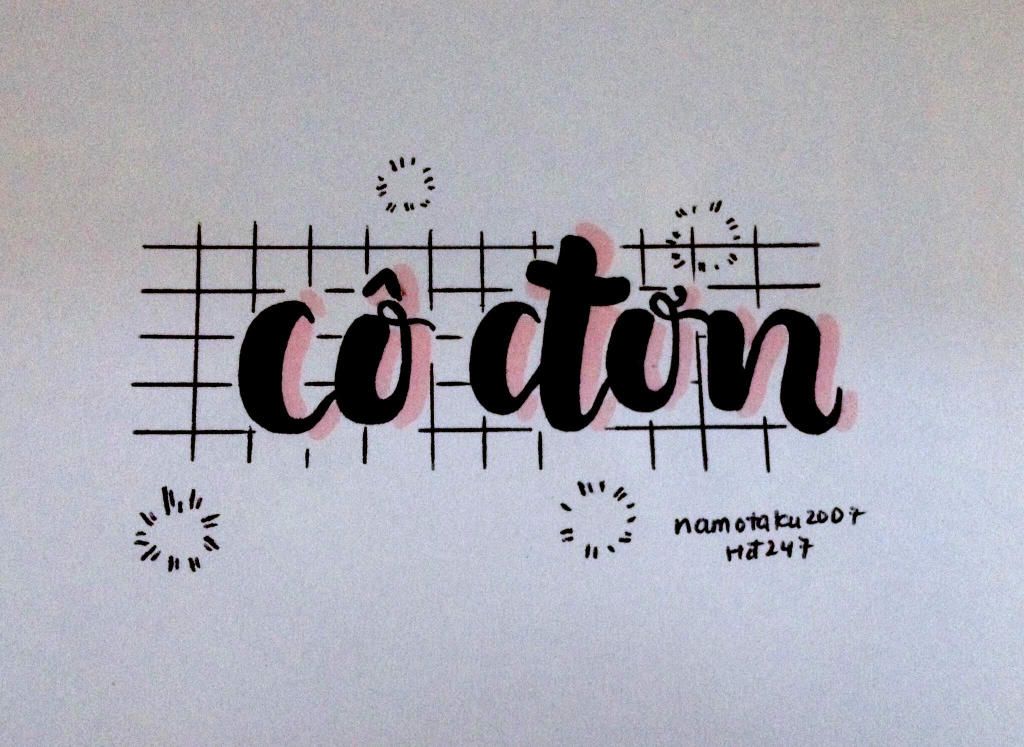 cô đơn
namotaku2007
Hđ247